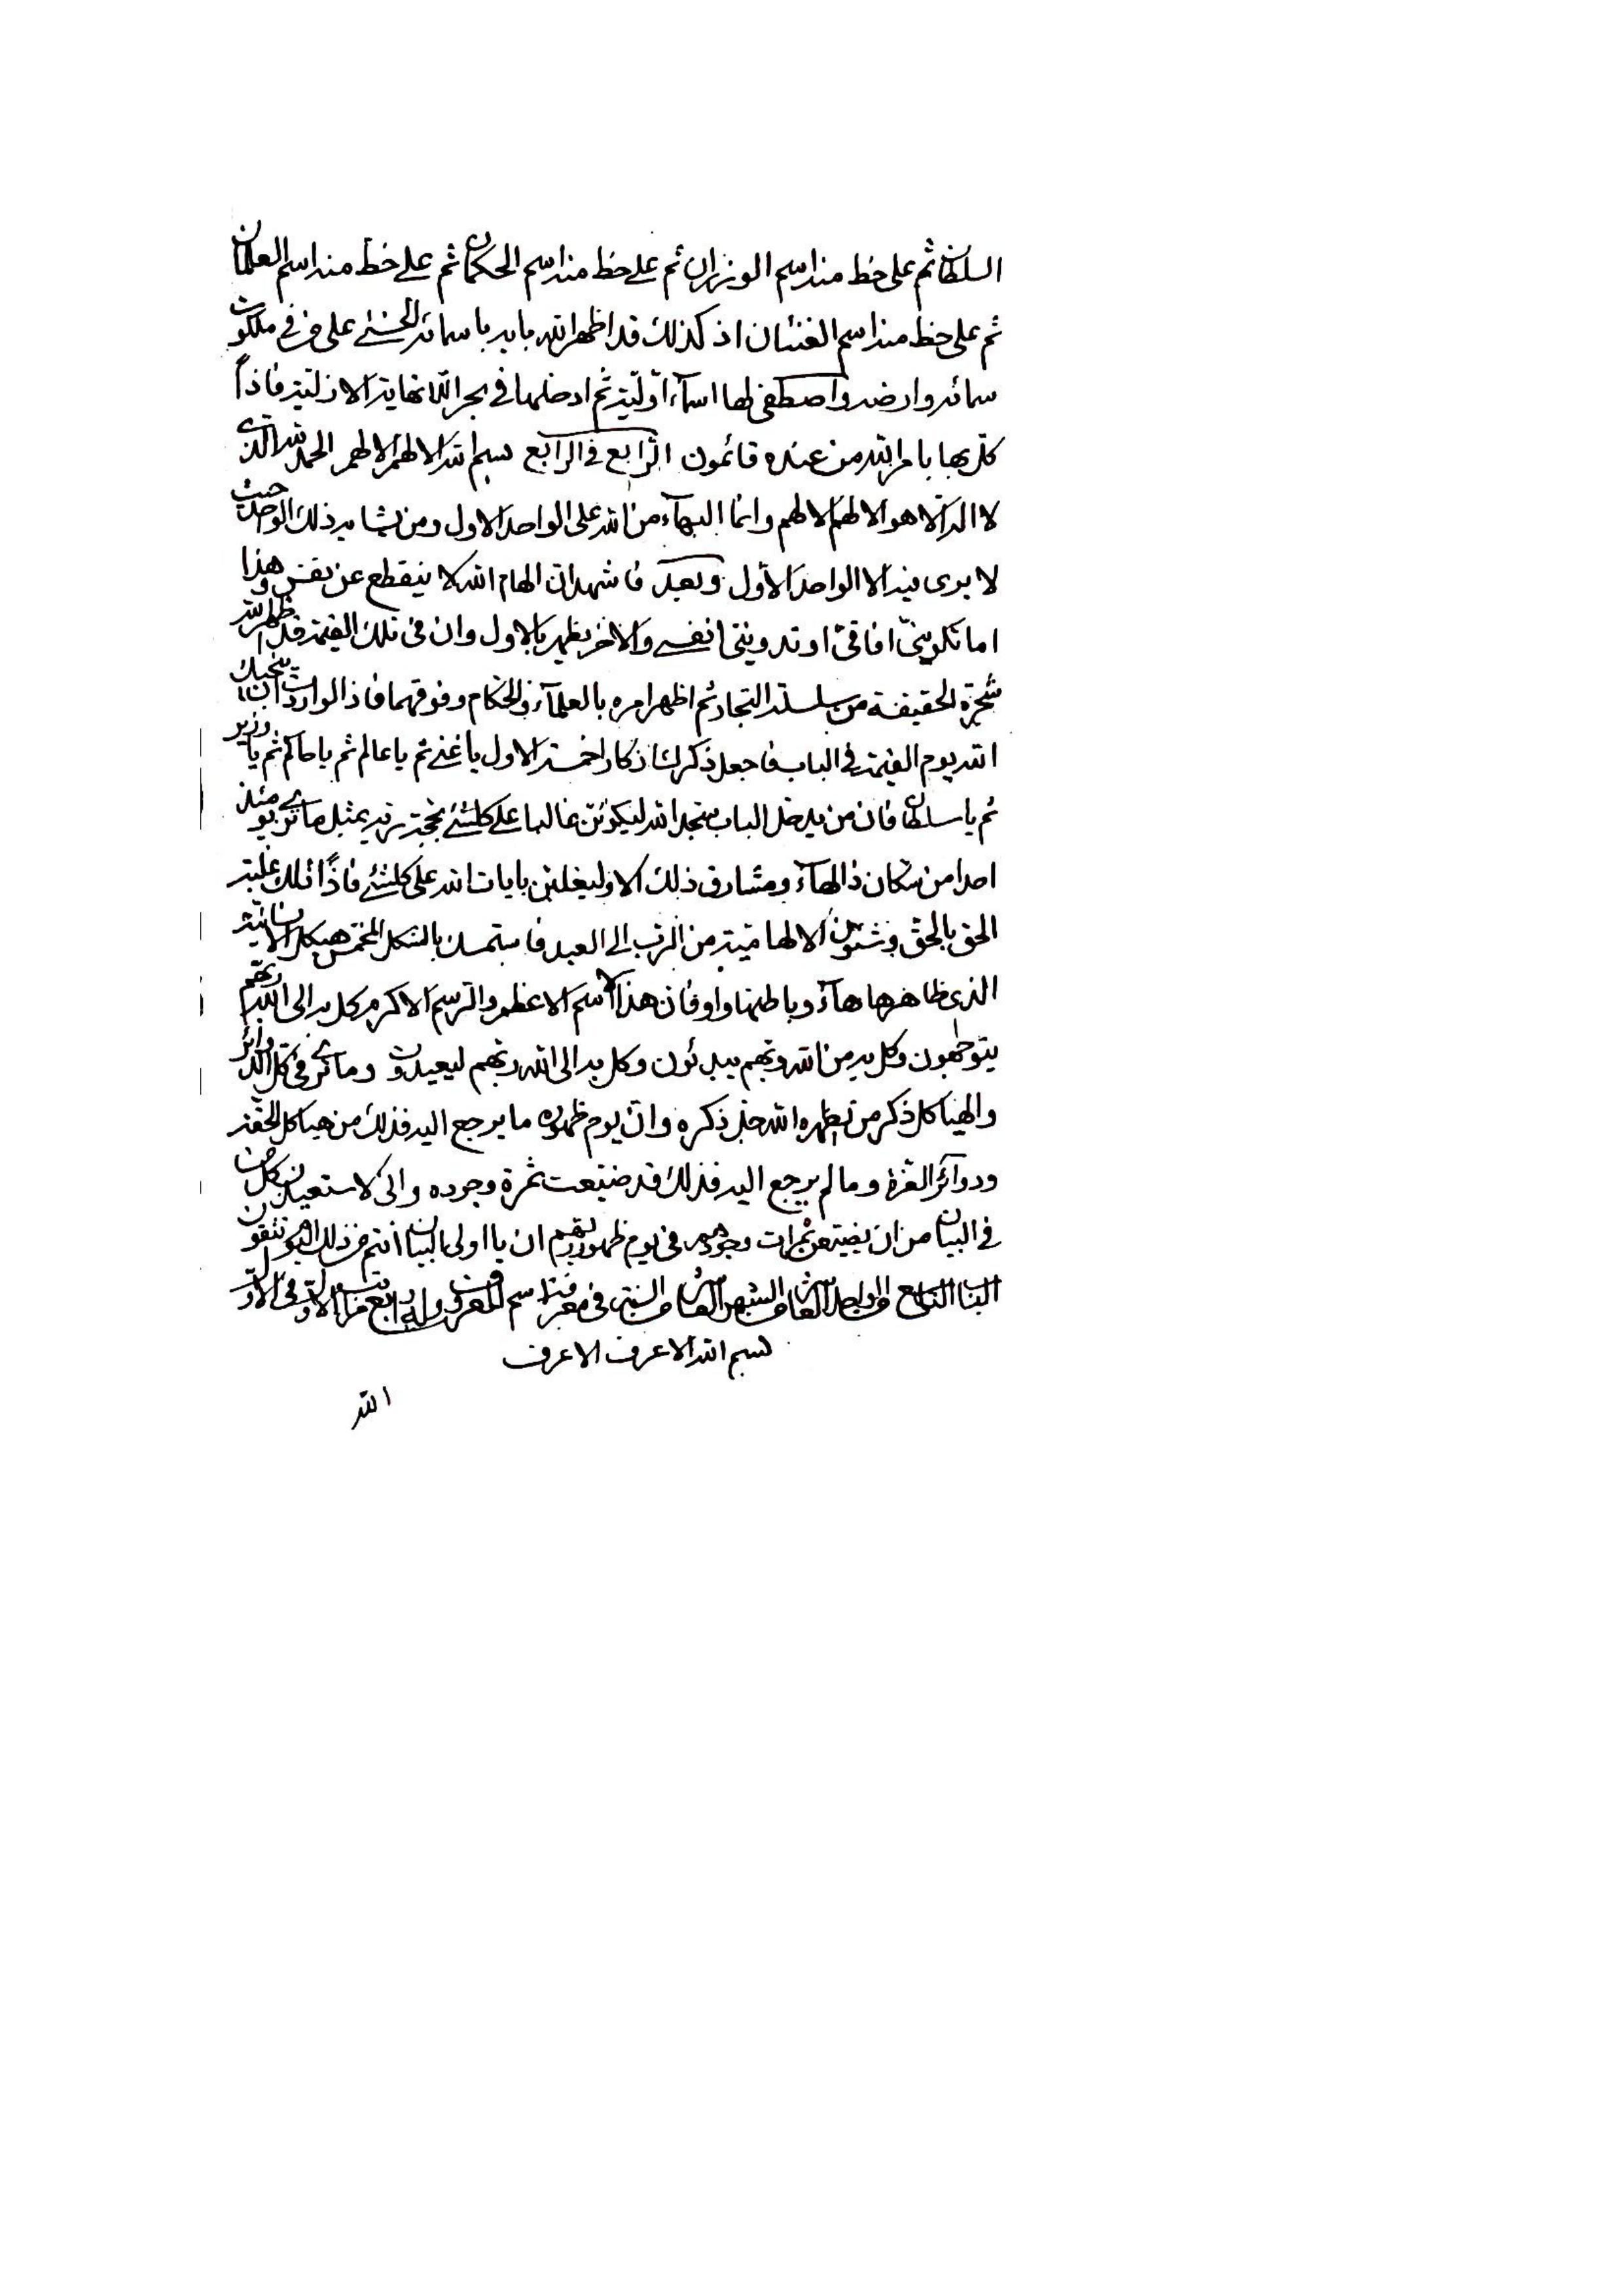 السلطان ثم على خط منه اسم الوزران ثم على خط منه اسم الحكمان ثم على خط منه اسم العلمان
ثم على خط منه اسم الغنئان اذ كذلك قد اظهر الله بابه باسمائه الحسنى على من في ملكوت
سمائه وارضه واصطفى لها اسماء اوّليّة ثم ادخلها في بحر اللانهاية الازليّة فاذاً
كلّ بها بامر الله من عنده قائمون الرّابع في الرّابع بسم الله الالهم الالهم الحمد لله الذي
لا اله الا هو الالهم الالهم وانما البهآء من الله على الواحد الاول ومن يشابه ذلك الواحد حيث
لا يرى فيه الا الواحد الأول وبعد فاشهد ان الهام الله لا ينقطع عن نفس وهذا
اما تكوينىّ افاقىّ او تدوينىّ انفسى والاخر يظهر بالاول وان فى تلك القيمة قد اظهر الله
شجرة الحقيقة من سلسلة التجار ثم اظهر امره بالعلمآء والحكام وفوقهما فاذا الواردت ان ينجيك
الله يوم القيمة في الباب فاجعل ذكرك اذكار خمسة الاول يا غنى ثم يا عالم ثم يا حاكم ثم يا وزير
ثم يا سلطان فان من يدخل الباب سجد الله ليكونن غالبا على كلشئ بحجة ربه بمثل ما ترى يومئذ
احدا من سكان ذا الهآء ومشارق ذلك الاو ليغلبن بايات الله على كلشئ فاذاً تلك غلبة
الحق بالحق وشئون الالهاميّة من الرب الى العبد فاستمسك بالشكل المخمس هيكل الانسانية
الذى ظاهرها هآء وباطنها واو فان هذا لاسم الاعظم والرسم الاكرم كل به الى الله ربهم
يتوجهون وكل به من الله ربهم يبدئون وكل به الى الله ربهم ليعيدون وما ترى في كل الدوائر
والهياكل ذكر من يظهره الله جل ذكره وان يوم ظهوره ما يرجع اليه فذلك من هياكل الحقة
ودوآئر العزة وما لم يرجع اليه فذلك قد ضيّعت ثمرة وجوده وانى لاستعيذن كل من
في البيان من ان يضيعن ثمرات وجودهم فى يوم ظهور ربهم ان يا اولى البيان انتم من ذلك اليوم تتقون
الباب التاسع من الواحد العاشر من الشهر العاشر من السنة فى معرفة اسم المعرف وله اربع مراتب الاول فى الاول
بسم الله الاعرف الاعرف
الله